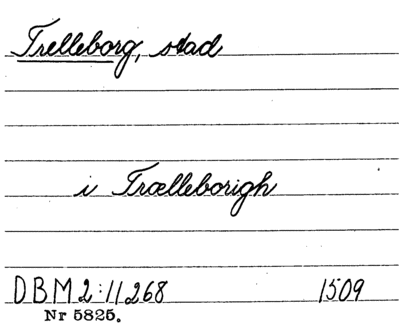 Trelleborg, stad
i Trælleborigh
DBM 2:11268 1509
Nr 5825.